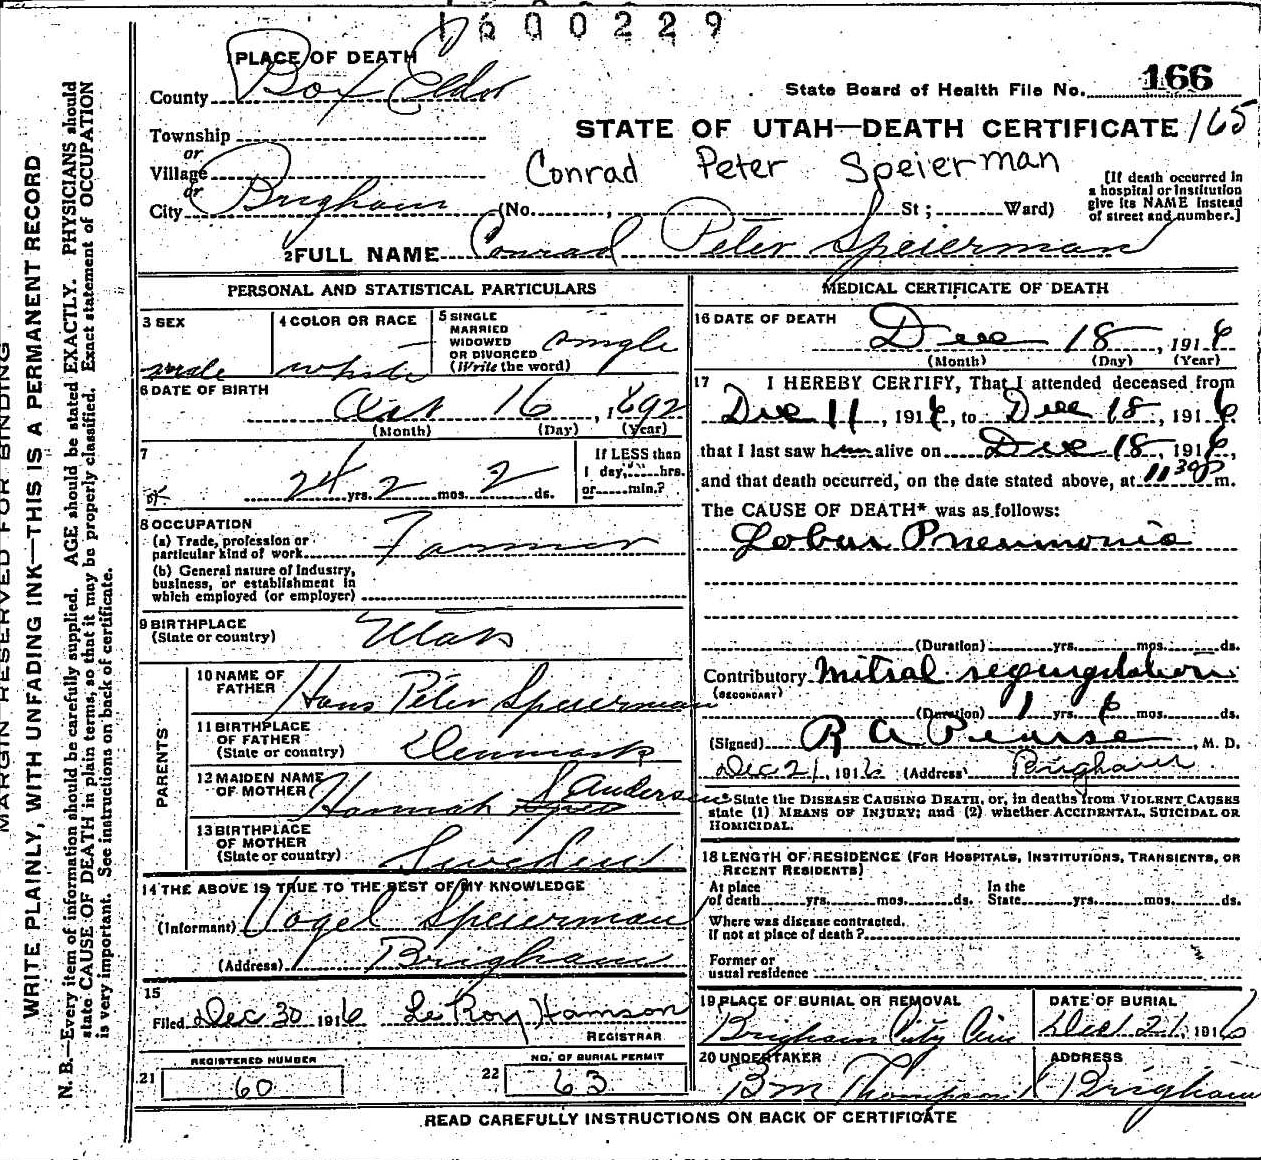 1600229
PLACE OF DEATH
County Box Elder
State Board of Health File No. 166
Township
STATE OF UTAH—DEATH CERTIFICATE 165
or
Village
Conrad Peter Speierman
or
City Brigham (No. , St ; Ward)
[If death occurred in
a hospital or institution
give its NAME instead
of street and number.]
2 FULL NAME Conrad Peter Speierman
PERSONAL AND STATISTICAL PARTICULARS
3 SEX
male
4 COLOR OR RACE
white
5 SINGLE
MARRIED
WIDOWED
OR DIVORCED
(Write the word)
single
6 DATE OF BIRTH
Oct 16, 1892
(Month) (Day) (Year)
7
24 yrs. 2 mos. 2 ds.
If LESS than
1 day, hrs.
or min.?
8 OCCUPATION
(a) Trade, profession or
particular kind of work Farmer
(b) General nature of Industry,
business, or establishment in
which employed (or employer)
9 BIRTHPLACE
(State or country)
Utah
PARENTS
10 NAME OF
FATHER
Hans Peter Speierman
11 BIRTHPLACE
OF FATHER
(State or country)
Denmark
12 MAIDEN NAME
OF MOTHER
Hannah Anderson
13 BIRTHPLACE
OF MOTHER
(State or country)
Sweden
14 THE ABOVE IS TRUE TO THE BEST OF MY KNOWLEDGE
(Informant) Vogel Speierman
(Address) Brigham
15
Filed Dec 30 1916 LeRoy Hamson
REGISTRAR
REGISTERED NUMBER
21 60
NO. OF BURIAL PERMIT
22 63
MEDICAL CERTIFICATE OF DEATH
16 DATE OF DEATH
Dec 18, 1916
(Month) (Day) (Year)
17 I HEREBY CERTIFY, That I attended deceased from
Dec 11, 1916, to Dec 18, 1916,
that I last saw him alive on Dec 18, 1916,
and that death occurred, on the date stated above, at 11 30 P m.
The CAUSE OF DEATH* was as follows:
Lobar Pneumonia
(Duration) yrs. mos. ds.
Contributory Mitral regurgitation
(SECONDARY)
(Duration) 1 yrs. 6 mos. ds.
(Signed) R A Pearse, M. D.
Dec 21, 1916 (Address) Brigham
* State the DISEASE CAUSING DEATH, or, in deaths from VIOLENT CAUSES
state (1) MEANS OF INJURY; and (2) whether ACCIDENTAL, SUICIDAL OR
HOMICIDAL.
18 LENGTH OF RESIDENCE (FOR HOSPITALS, INSTITUTIONS, TRANSIENTS, OR
RECENT RESIDENTS)
At place
of death yrs. mos. ds.
In the
State yrs. mos. ds.
Where was disease contracted.
if not at place of death?
Former or
usual residence
19 PLACE OF BURIAL OR REMOVAL
Brigham City Cem
DATE OF BURIAL
Dec 21, 1916
20 UNDERTAKER
B M Thompson
ADDRESS
Brigham
READ CAREFULLY INSTRUCTIONS ON BACK OF CERTIFICATE
MARGIN RESERVED FOR BINDING
WRITE PLAINLY, WITH UNFADING INK—THIS IS A PERMANENT RECORD
N. B.—Every item of information should be carefully supplied. AGE should be stated EXACTLY. PHYSICIANS should
state CAUSE OF DEATH in plain terms, so that it may be properly classified. Exact statement of OCCUPATION
is very important. See instructions on back of certificate.